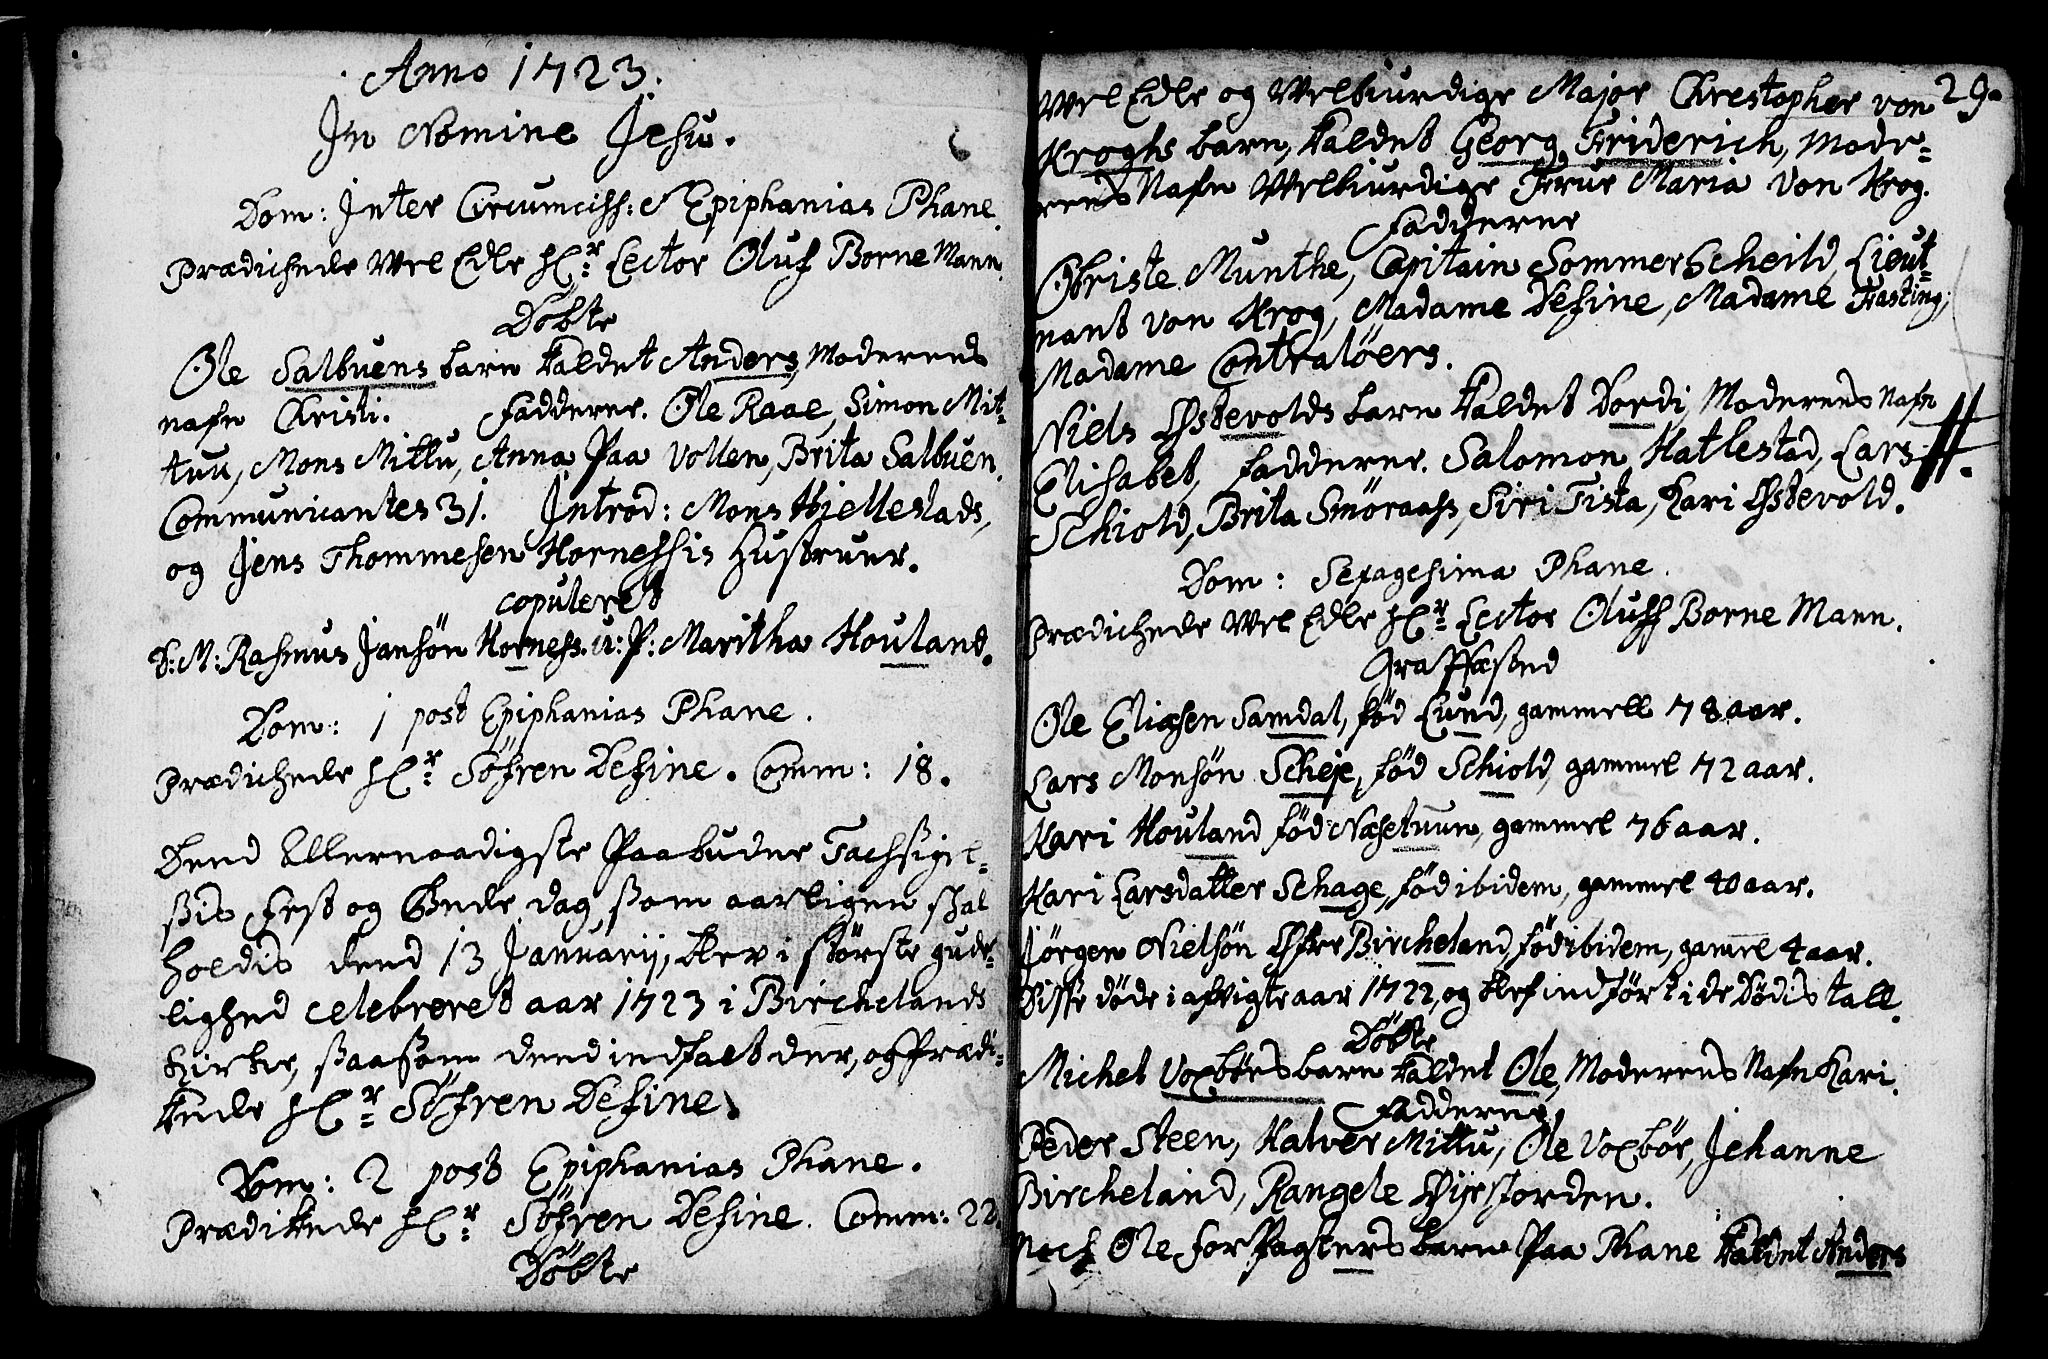 Anno 1723.
In Nomine Jesu.
Dom: Inter Circumciss: & Epiphanias Phane.
Prædichede Wel Edle Hr: Lector Oluf Borne Mann.
Döbte
Ole Salbuens barn kaldet Anders, Moderens
nafn Christi. Fadderne. Ole Raae, Simon Mit-
tuu, Mons Mittu, Anna Paa Vollen, Brita Salbuen.
Communicantes 31. Introd: Mons Hjellestads,
og Jens Thommesen Hornessis Hustruer.
copuleret
S: M: Rasmus Jansön Horness. u: P: Maritha Houland.
Dom: 1 post Epiphanias Phane.
Prædichede Hr: Söfren Define. Comm: 18.
Dend Allernaadigste Paabudne Tachsigel-
sis Fest og Bede dag, som aarligen skal
holdis dend 13 Januarij, blev i störste gude-
lighed celebreret aar 1723 i Birchelands
Kirke, saasom dend indfalt der, og Prædi-
kede Hr: Söfren Define.
Dom: 2 post Epiphanias Phane.
Prædikede Hr: Söfren Define. Comm: 22.
Döbte
29.
Wel Edle og Welbiurdige Major Chrestopher von
Kroghs barn, kaldet Georg Friderich, Mode-
rens Nafn Welbiurdige Frue Maria von Krog.
Fadderne
Obriste Munthe, Capitain Sommerscheild, Lieut-
nant von Krog, Madame Define, Madame Fasting,
Madame Contralöers.
Niels Östevolds barn kaldet Dordi, Moderens Nafn
Elisabet, Fadderne. Salomon Hatlestad, Lars
Schiold, Brita Smöraass, Siri Tista, Kari Östevold.
Dom: Sexagesima Phane.
Prædichede Wel Edle Hr: Lector Oluff Borne Mann.
Graffæsted
Ole Eliæsen Samdal, föd Lund, gammell 78 aar.
Lars Monsön Scheje, föd Schiold, gammel 72 aar.
Kari Houland föd Næsetuun, gammel 76 aar.
Kari Larsdatter Schage, föd ibidem, gammel 40 aar.
Jörgen Nielsön Öfre Bircheland, föd ibidem, gamel 4 aar.
Disse döde i afvigte aar 1722, og blef indfört i de Dödis tall.
Döbte
Michel Voxbörs barn kaldet Ole, Moderens Nafn Kari.
Fadderne,
Peder Steen, Halver Mittu, Ole Voxbör, Jehanne
Bircheland, Rangele Öijejorden.
Noch Ole Forpagters barn Paa Phane kaldet Anders